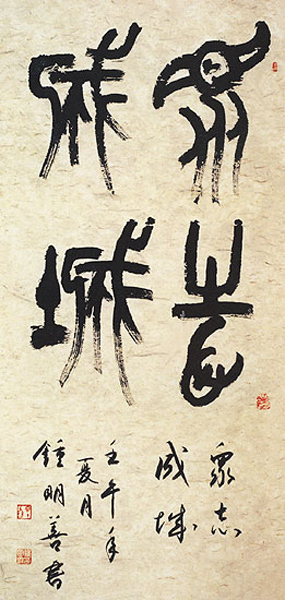 眾志
成城
眾志
成城
壬午年
夏月
鍾明善書